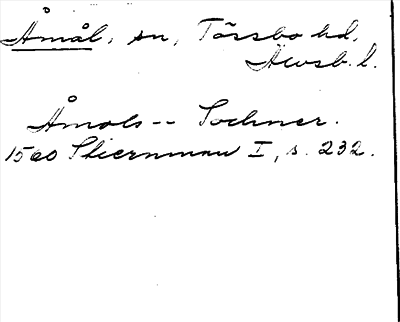 Åmål, sn, Tössbo hd,
Älvsb. l.
Åmols -- Sochner.
1560 Stiernman I, s. 232.